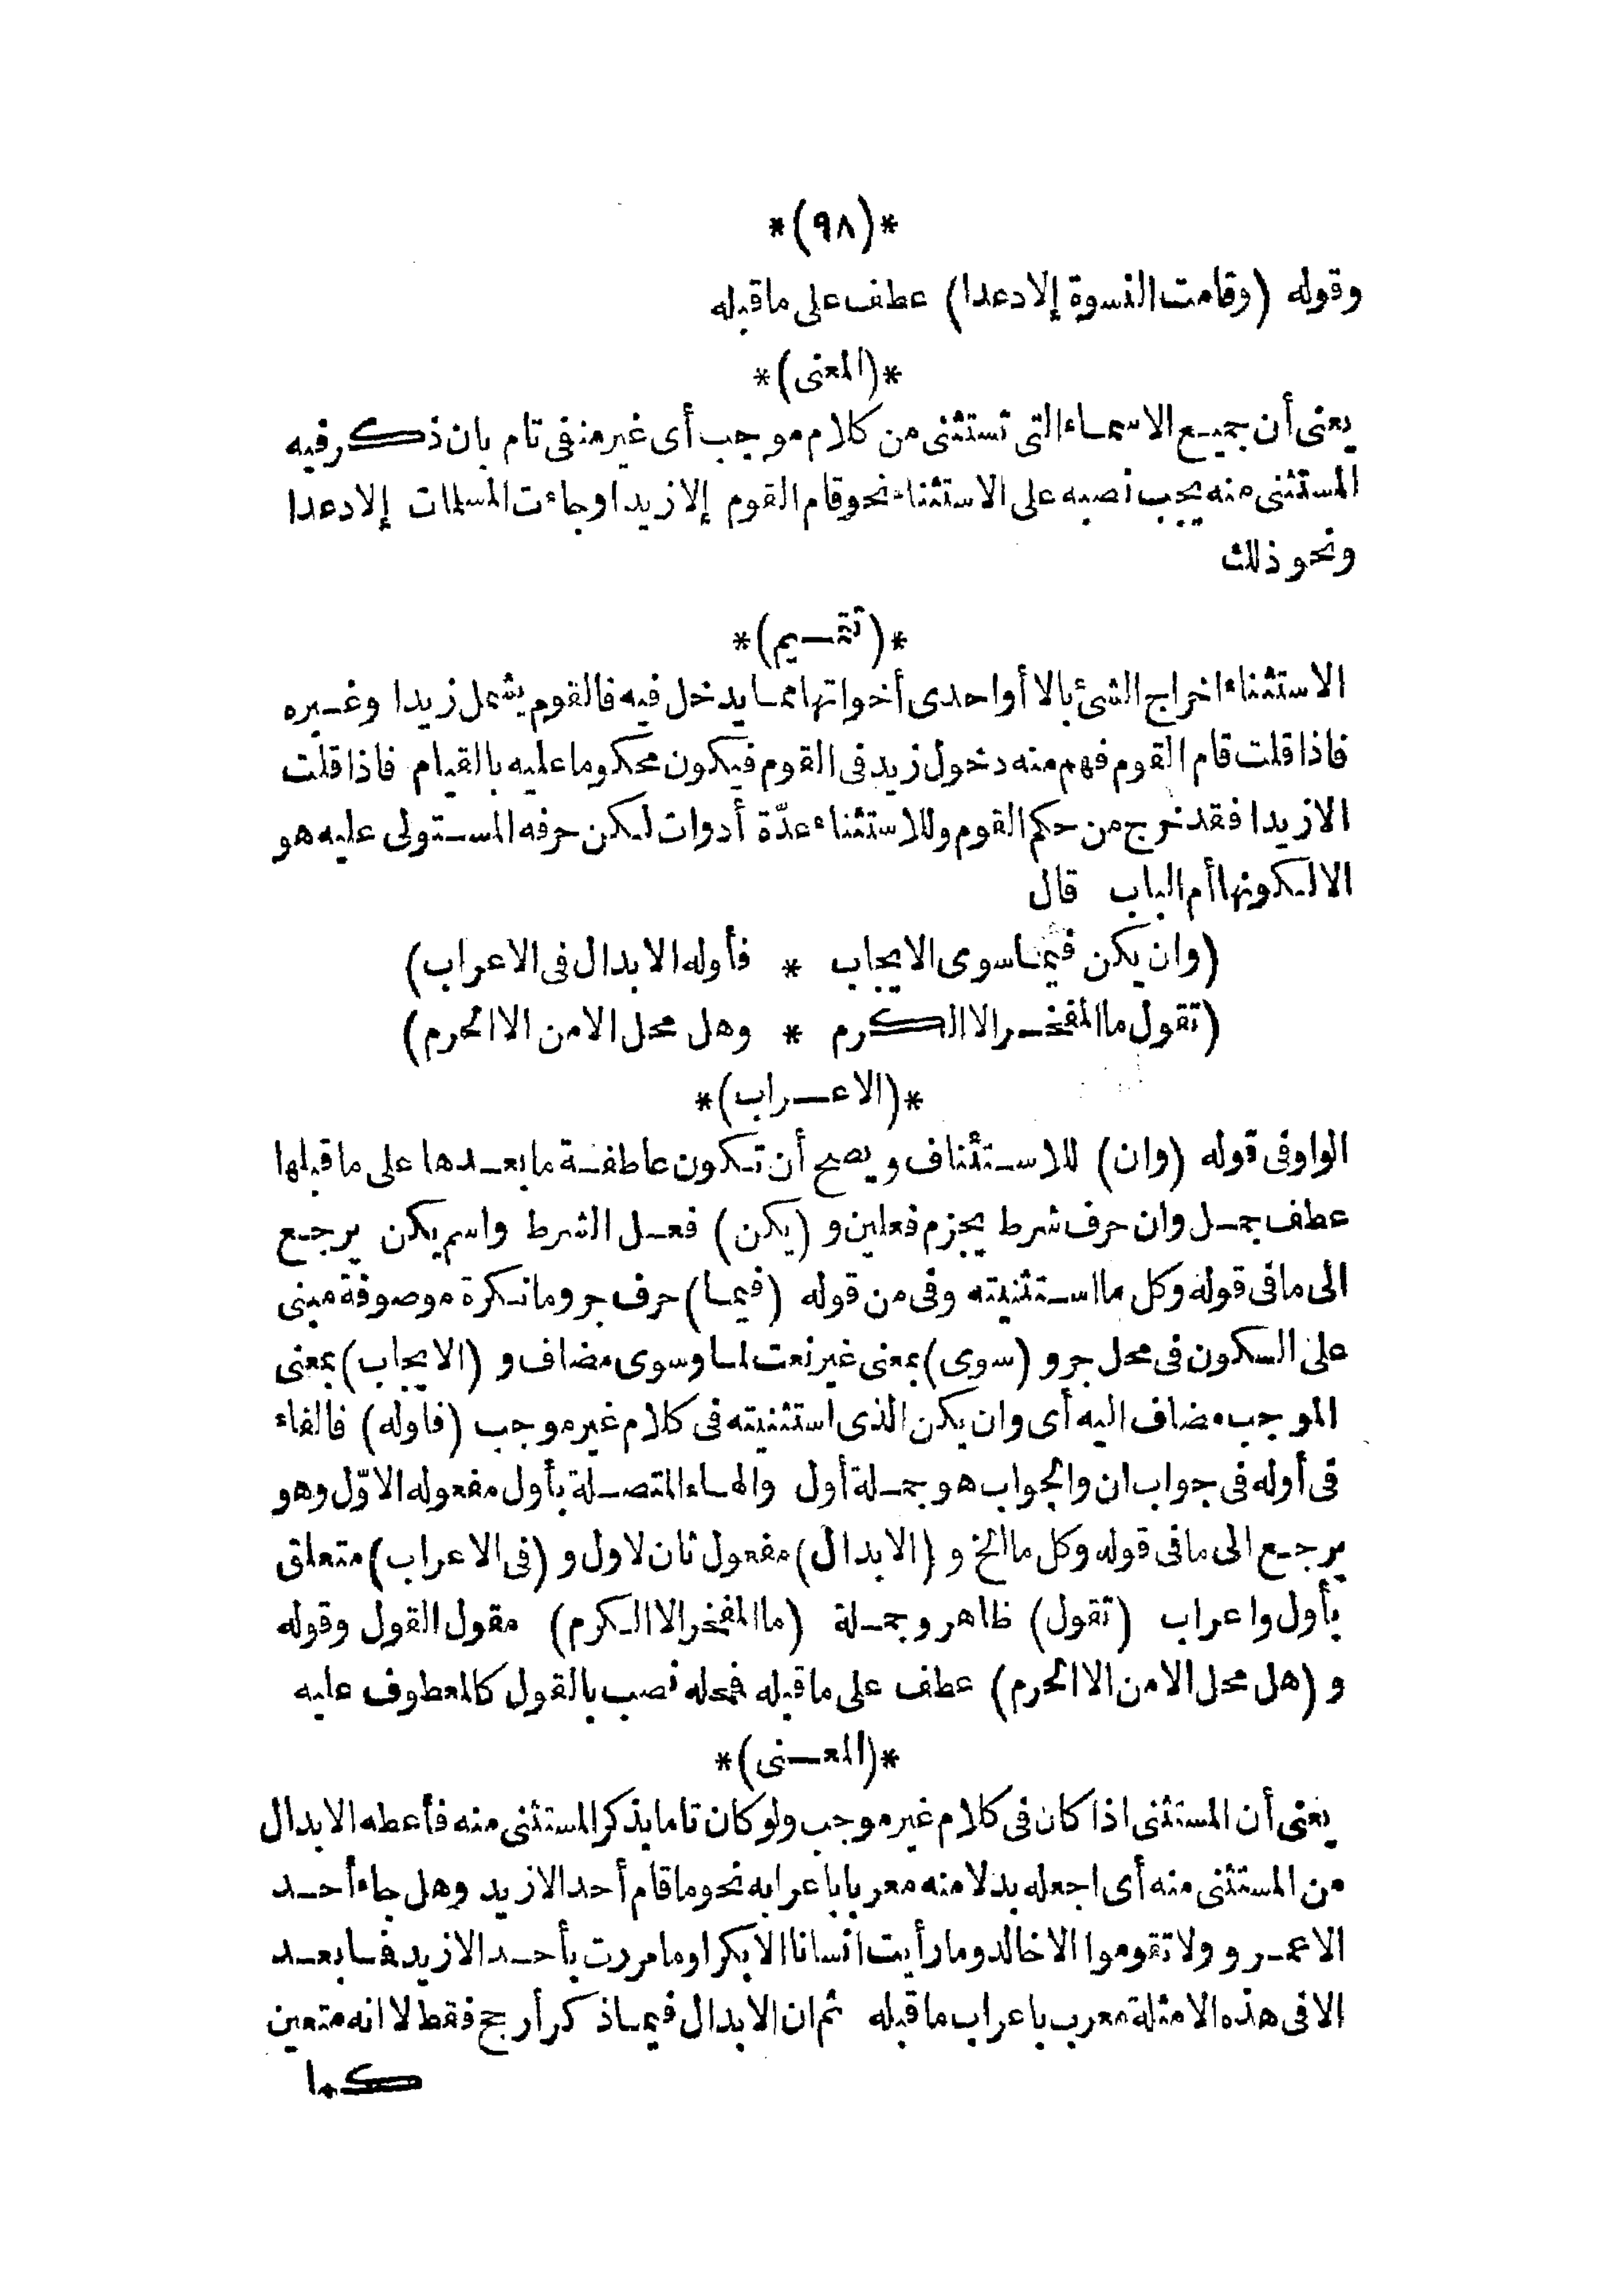 *(٩٨)*
وقوله (وقامت النسوة إلا دعدا) عطف على ما قبله
*(المعنى)*
يعنى أن جميع الاسماء التى تستثنى من كلام موجب أى غير منفى تام بان ذكر فيه
المستثنى منه يجب نصبه على الاستثناء نحو قام القوم إلا زيدا وجاءت المسلمات إلا دعدا
ونحو ذلك
*(تقسيم)*
الاستثناء اخراج الشئ بالا أو احدى أخواتها مما يدخل فيه فالقوم يشمل زيدا وغيره
فاذا قلت قام القوم فهم منه دخول زيد فى القوم فيكون محكوما عليه بالقيام فاذا قلت
الا زيدا فقد خرج من حكم القوم وللاستثناء عدّة أدوات لكن حرفه المستولى عليه هو
الا لكونها أم الباب قال
(وان يكن فيما سوى الايجاب * فأوله الابدال فى الاعراب)
(تقول ما المفخر الا الكرم * وهل محل الامن الا الحرم)
*(الاعراب)*
الواو فى قوله (وان) للاستئناف ويصح أن تكون عاطفة ما بعدها على ما قبلها
عطف جمل وان حرف شرط يجزم فعلين و (يكن) فعل الشرط واسم يكن يرجع
الى ما فى قوله وكل ما استثنيته وفى من قوله (فيما) حرف جر وما نكرة موصوفة مبنى
على السكون فى محل جر و (سوى) بمعنى غير نعت لما وسوى مضاف و (الايجاب) بمعنى
الموجب مضاف اليه أى وان يكن الذى استثنيته فى كلام غير موجب (فاوله) فالفاء
فى أوله فى جواب ان والجواب هو جملة أول والهاء المتصلة بأول مفعوله الاوّل وهو
يرجع الى ما فى قوله وكل ما الخ و (الابدال) مفعول ثان لاول و (فى الاعراب) متعلق
بأول واعراب (تقول) ظاهر وجملة (ما المفخر الا الكرم) مقول القول وقوله
و (هل محل الامن الا الحرم) عطف على ما قبله فمحله نصب بالقول كالمعطوف عليه
*(المعنى)*
يعنى أن المستثنى اذا كان فى كلام غير موجب ولو كان تاما بذكر المستثنى منه فأعطه الابدال
من المستثنى منه أى اجعله بدلا منه معربا باعرابه نحو ما قام أحد الا زيد وهل جاء أحد
الا عمرو ولا تقوموا الا خالد وما رأيت انسانا الا بكرا وما مررت بأحد الا زيد فما بعد
الا فى هذه الامثلة معرب باعراب ما قبله ثم ان الابدال فيما ذكر أرجح فقط لا انه متعين
كما